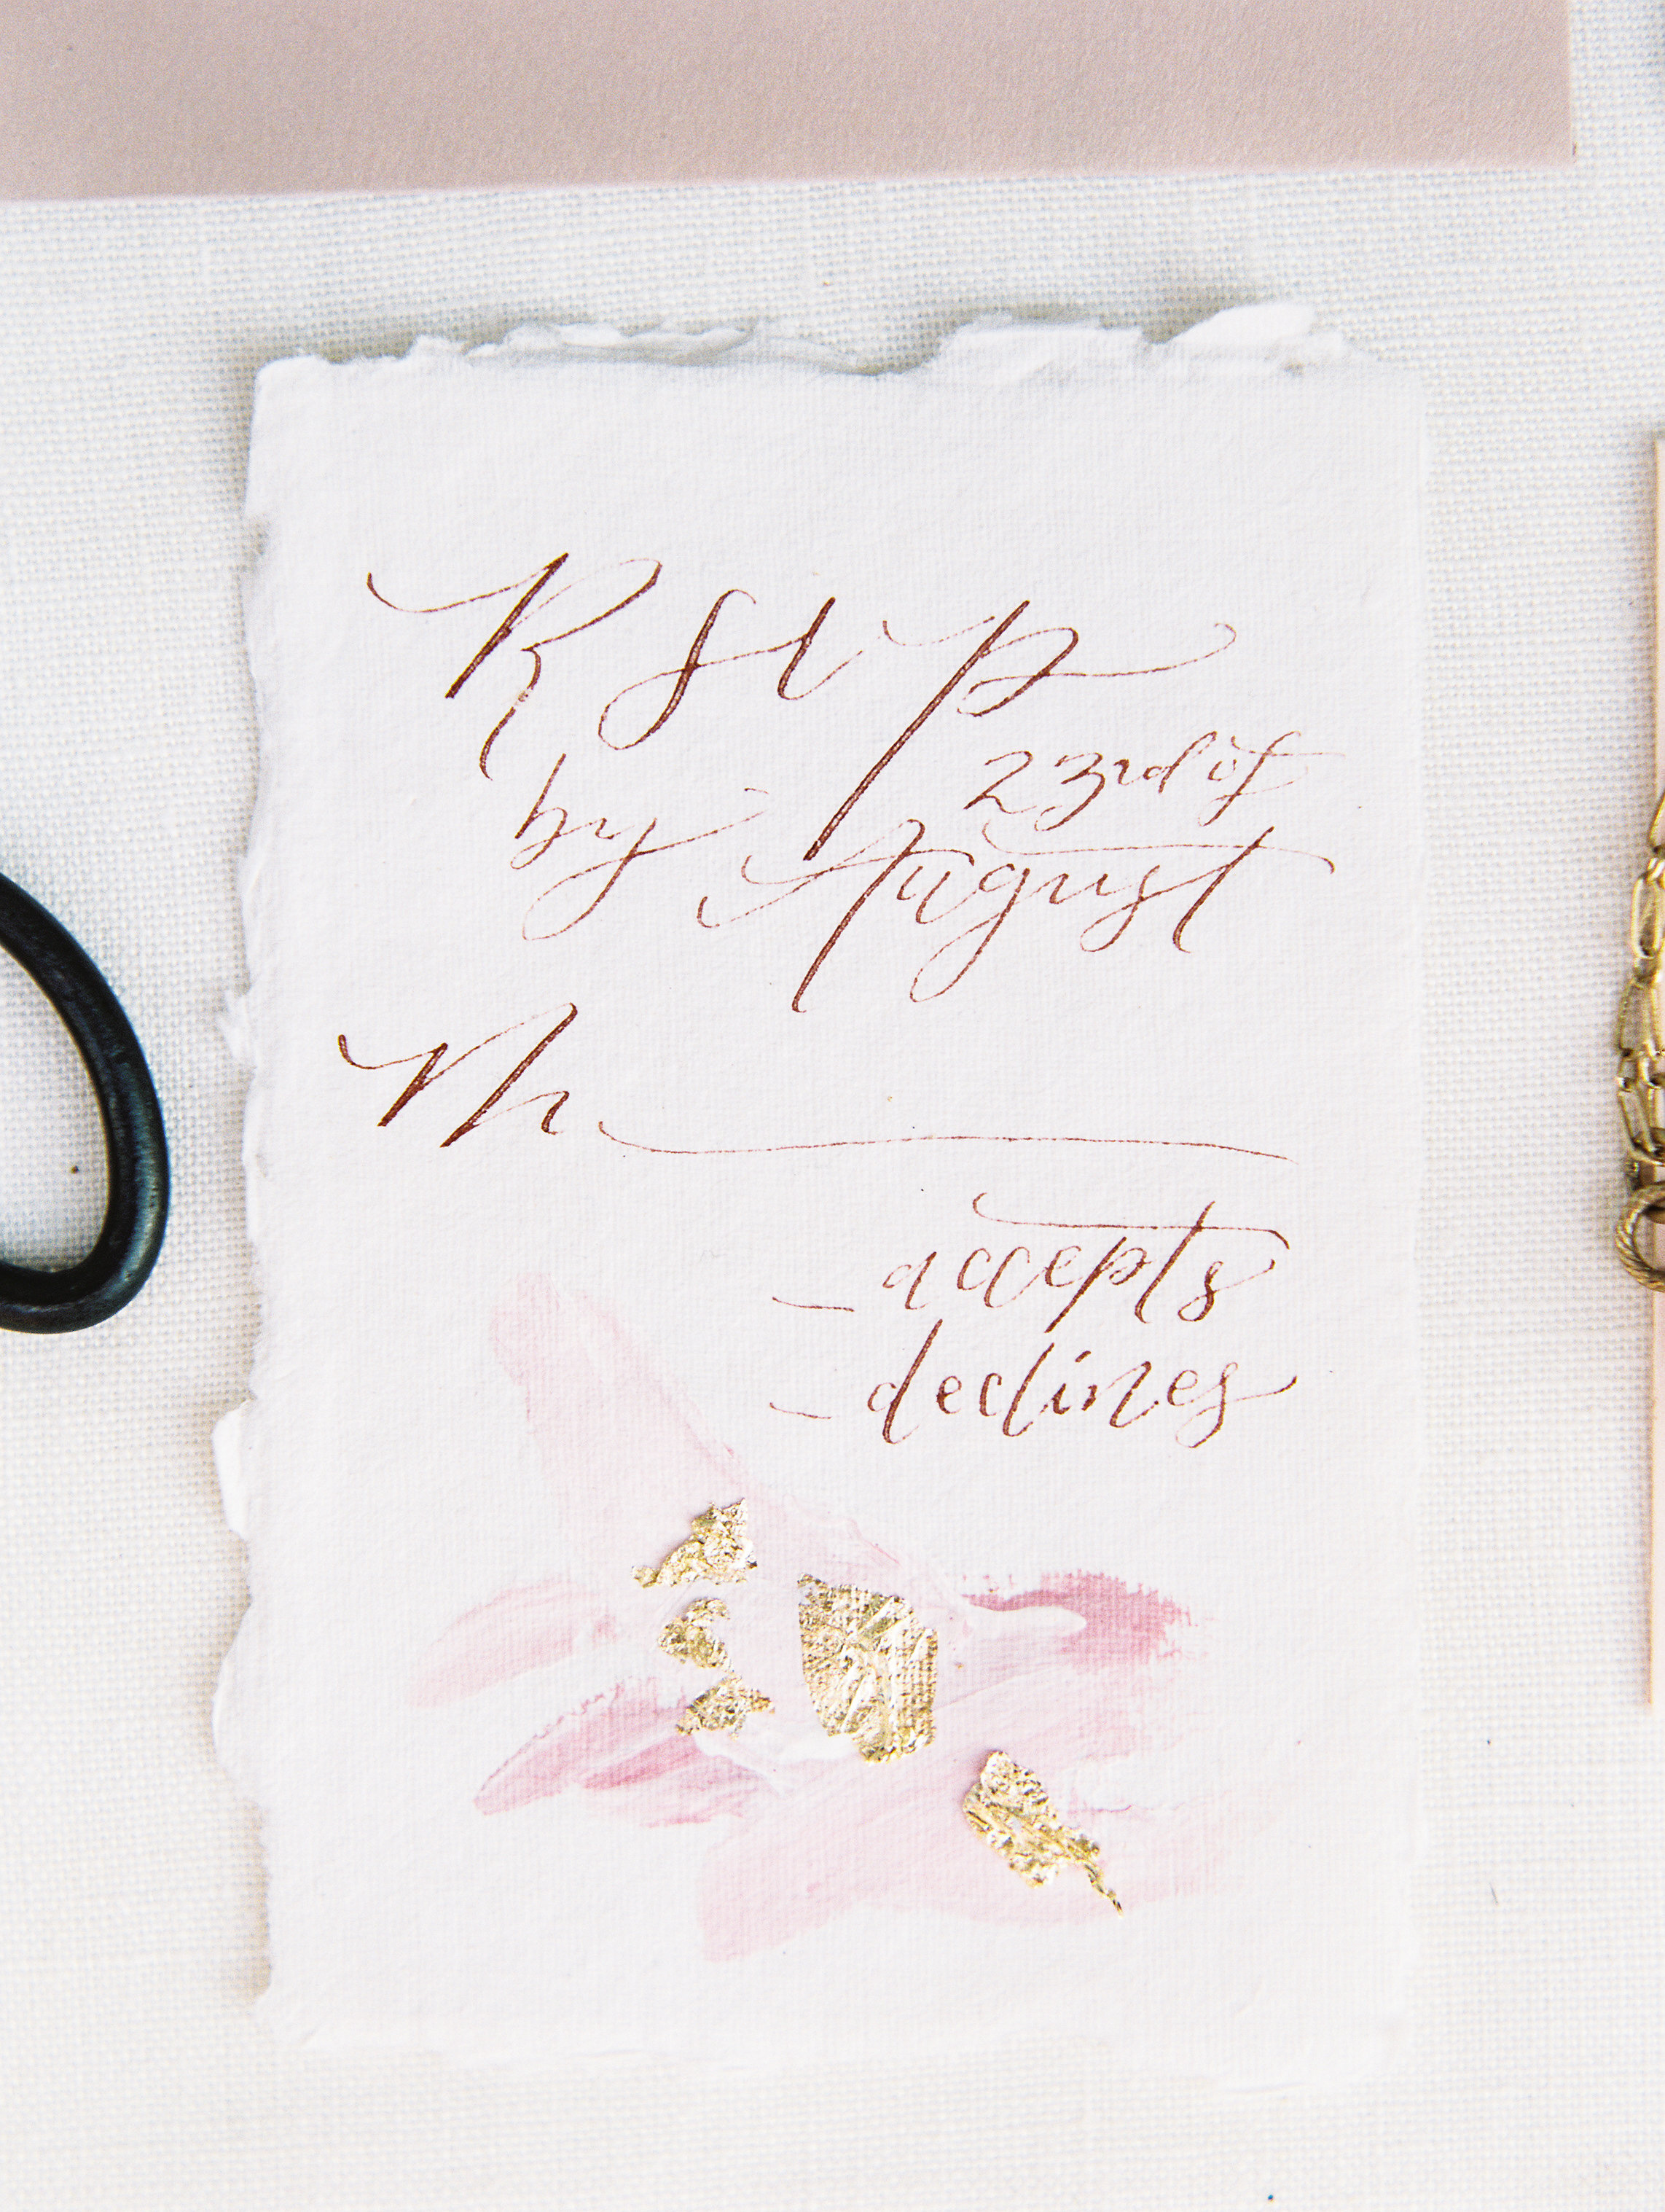 RSVP
by 23rd of
August
M
accepts
declines